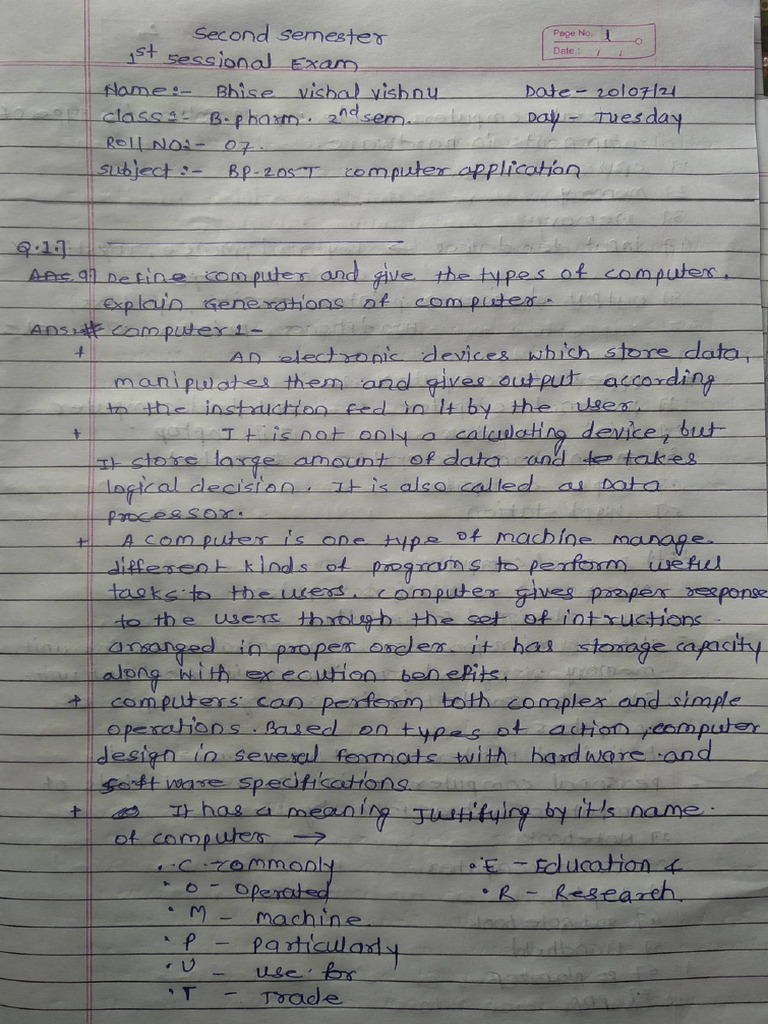 Second Semester
Page No. 1
1st Sessional Exam
Date.: / /
Name:- Bhise vishal vishnu Date - 20/07/21
class:- B.pharm. 2nd sem. Day - Tuesday
Roll NO:- 07.
subject:- BP-205T computer application
Q.1.]
Ans a] Define computer and give the types of computer.
Explain Generations of computer.
Ans:- # computer :-
+ An electronic devices which store data,
manipulates them and gives output according
to the instruction fed in it by the user.
+ It is not only a calculating device, but
It store large amount of data and to takes
logical decision. It is also called as Data
processor.
+ A computer is one type of machine manage
different kinds of programs to perform useful
tasks to the users. computer gives proper response
to the users through the set of intructions
arranged in proper order. it has storage capacity
along with execution benefits.
+ computers can perform both complex and simple
operations. Based on types of action, computer
design in several formats with hardware and
software specifications.
+ It has a meaning Justifying by it's name
of computer →
• C - commonly • E - Education &
• O - Operated • R - Research.
• M - machine
• P - Particularly
• U - use for
• T - Trade